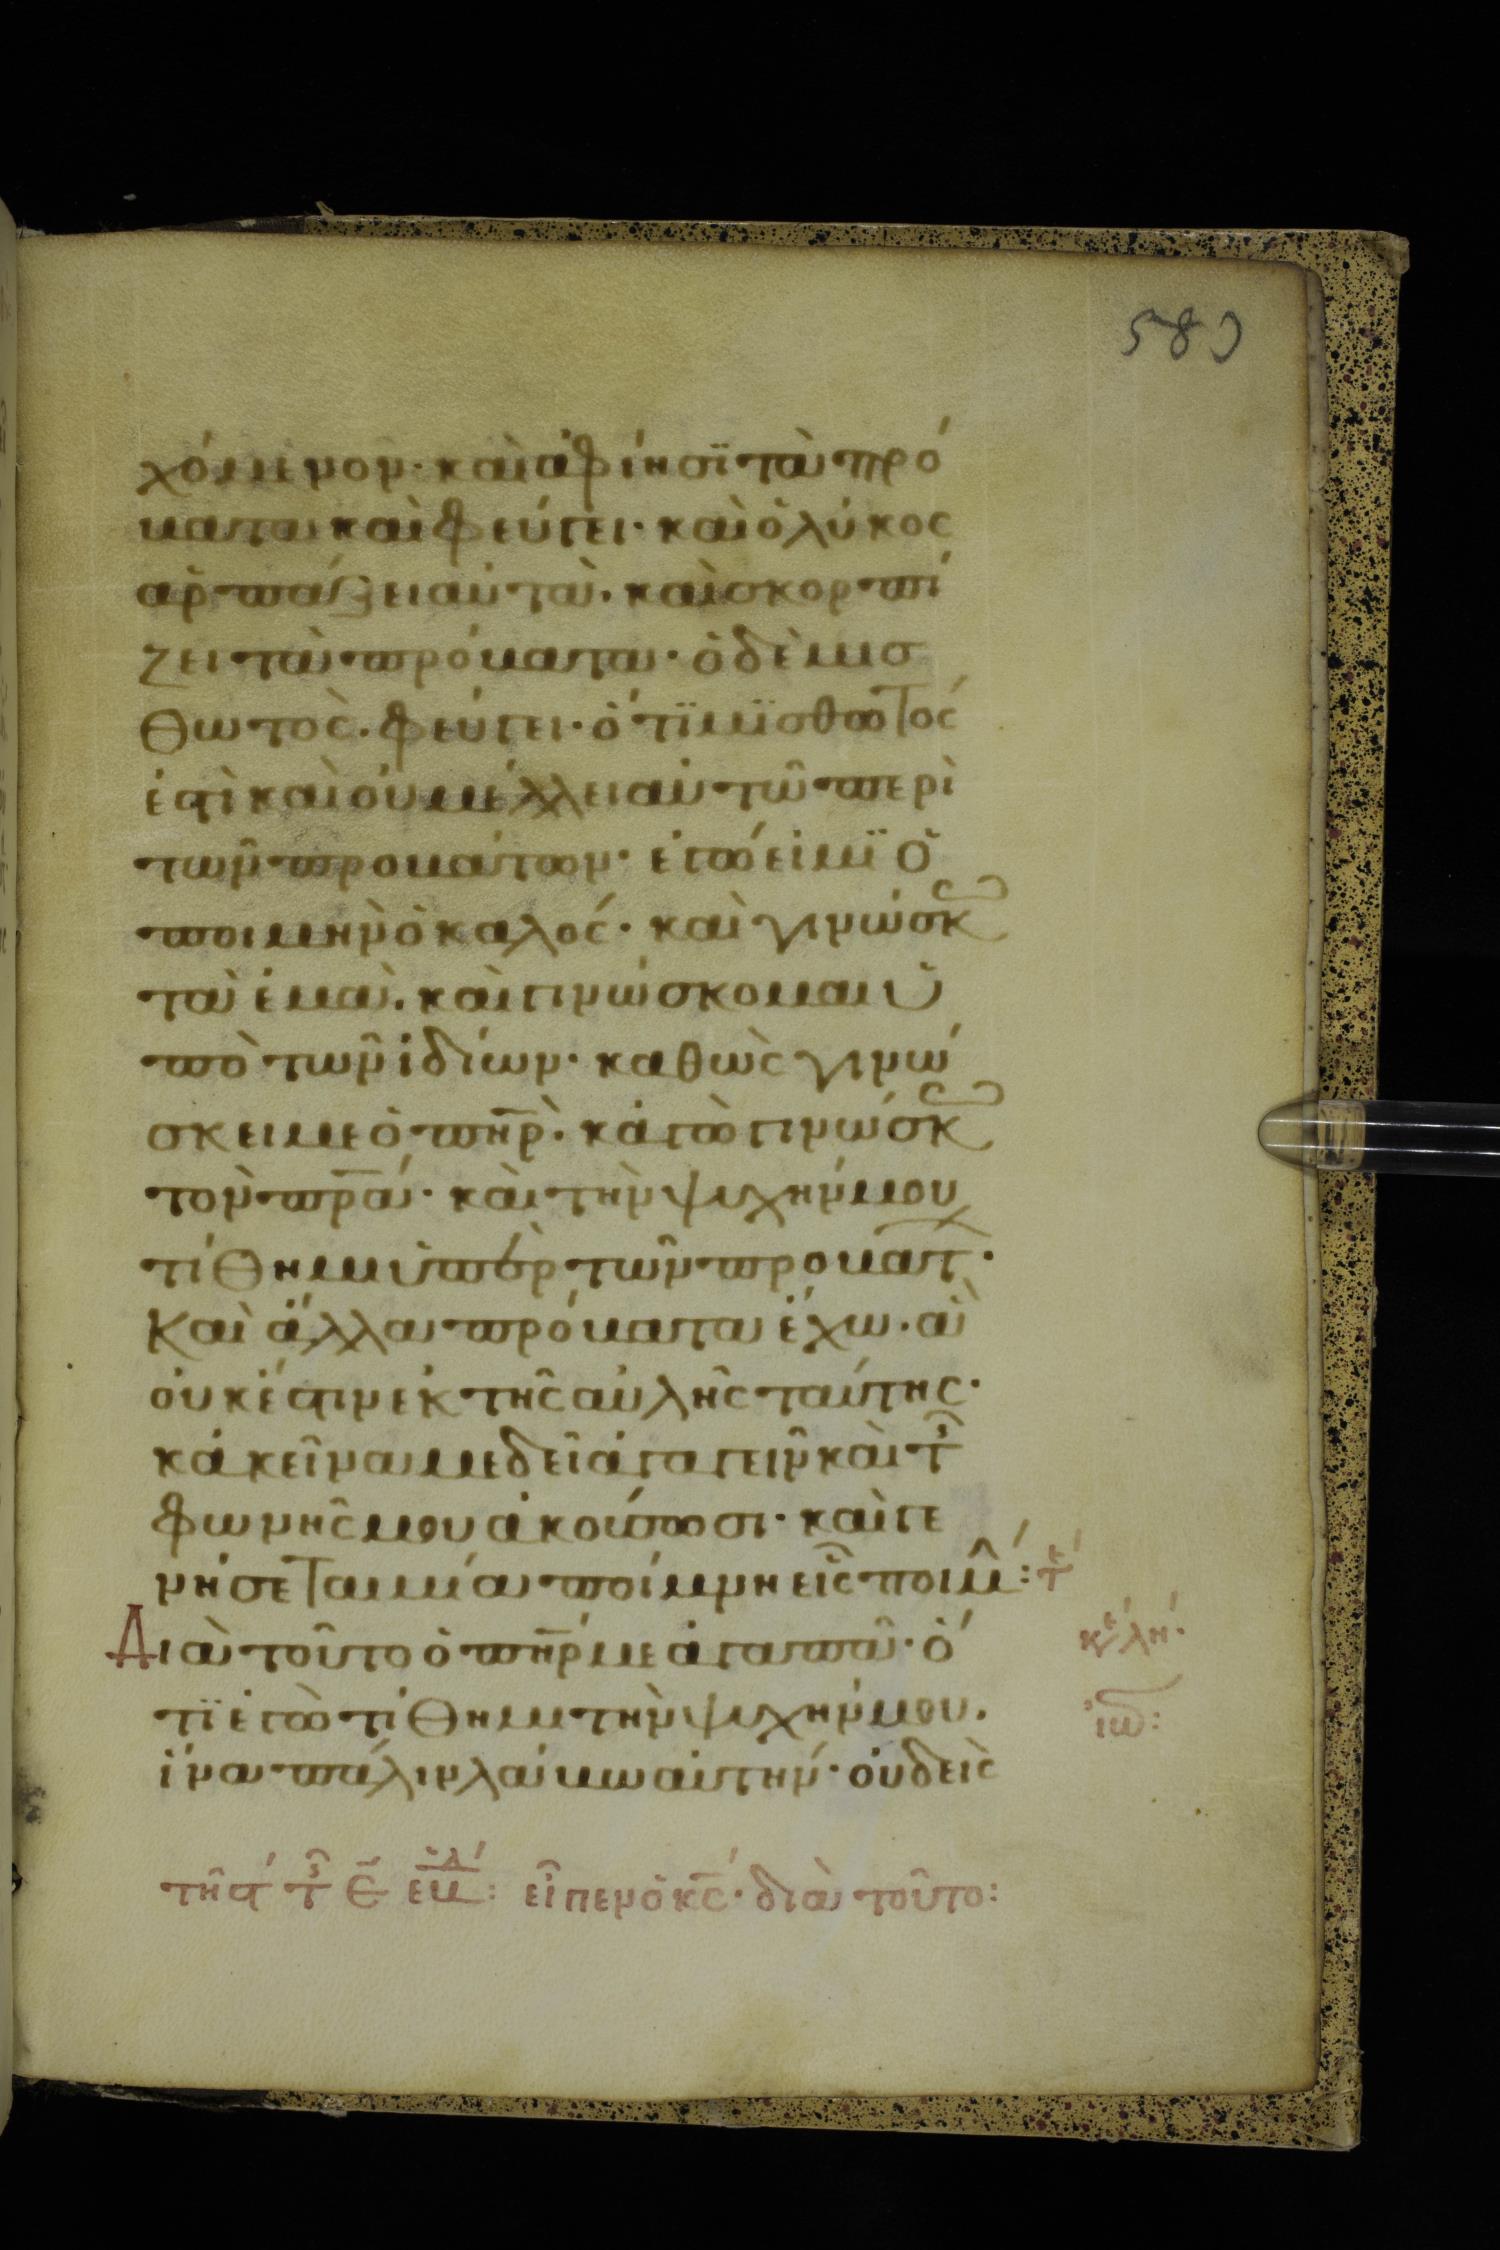 580
χόμενον· καὶ ἀφίησϊ τὰ πρό
βατα καὶ φεύγει· καὶ ὁ λύκος
αρπάζει αὐτὰ· καὶ σκορπί
ζει τὰ πρόβατα· ὁ δὲ μισ
θωτὸς· φεύγει· ὅτϊ μϊσθωτός
ἐστὶ καὶ οὐ μέλλει αὐτῶ περὶ
τῶν προβάτων· ἐγώ εἰμϊ ὁ
ποιμὴν ὁ καλός· καὶ γινώσκ
τὰ ἐμὰ· καὶ γινώσκομαι ὑ
πὸ τῶν ἰδίων· καθὼς γινώ
σκει με ὁ πηρ· κἀγὼ γινώσκ
τὸν πρα· καὶ τὴν ψυχήν μου
τίθημι ὑπὲρ τῶν προβατ·
Καὶ ἄλλα πρόβατα ἔχω· ἃ
οὐκ ἔστιν ἐκ τῆς αὐλῆς ταύτης·
κἀκεῖνα με δεῖ ἀγαγεῖν καὶ τ
φωνῆς μου ἀκούσωσι· καὶ γε
νήσεται μία ποίμνη εἷς ποιμ: τ
Διὰ τοῦτο ὁ πηρ με ἀγαπᾶ· ὅ
τϊ ἐγὼ τίθημι τὴν ψυχήν μου·
ἵνα πάλιν λάβω αὐτήν· οὐδεὶς
ιω:
τῆ γ τ ς ε εβ: εἶπεν ὁ κς· διὰ τοῦτο: